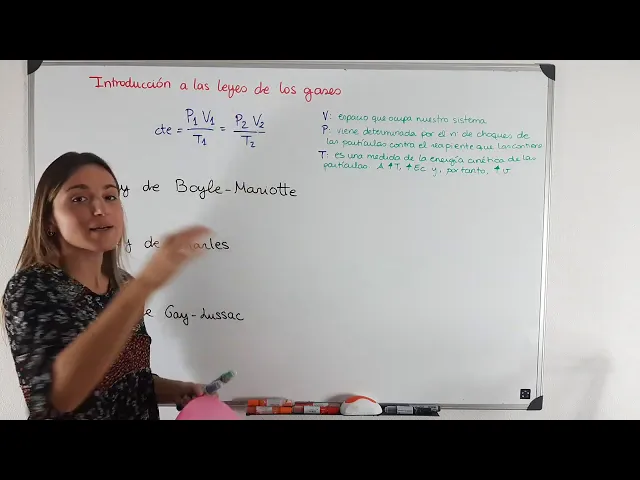 Introducción a las leyes de los gases
cte = P₁ V₁ / T₁ = P₂ V₂ / T₂
V: espacio que ocupa nuestro sistema
P: viene determinada por el nº de choques de
las partículas contra el recipiente que las contiene
T: es una medida de la energía cinética de las
partículas A ↑T, ↑Ec y, por tanto, ↑v
y de Boyle-Mariotte
y de Charles
e Gay-Lussac